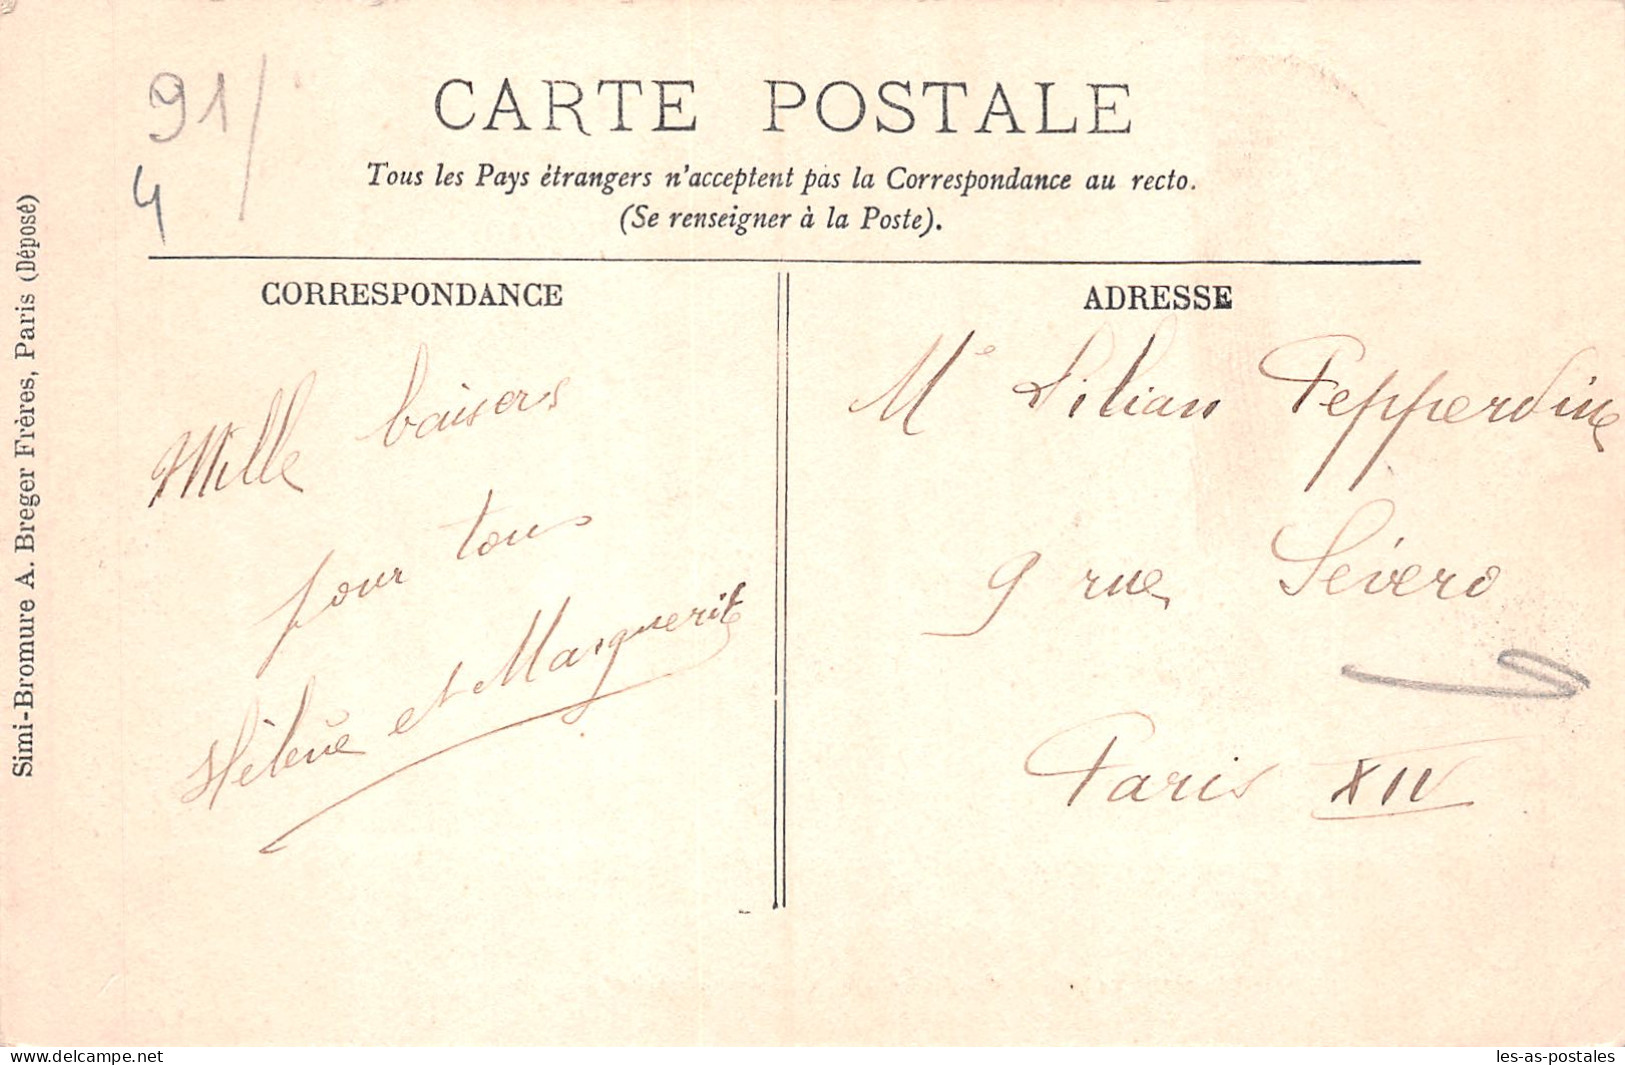 91/
4
CARTE POSTALE
Tous les Pays étrangers n'acceptent pas la Correspondance au recto.
(Se renseigner à la Poste).
CORRESPONDANCE
Mille baisers
pour tous
Hélène et Marguerite
ADRESSE
Me Lilian Pepperdine
9 rue Sévero
Paris XIV
Simi-Bromure A. Breger Frères, Paris (Déposé)
delcampe.net
les-as-postales